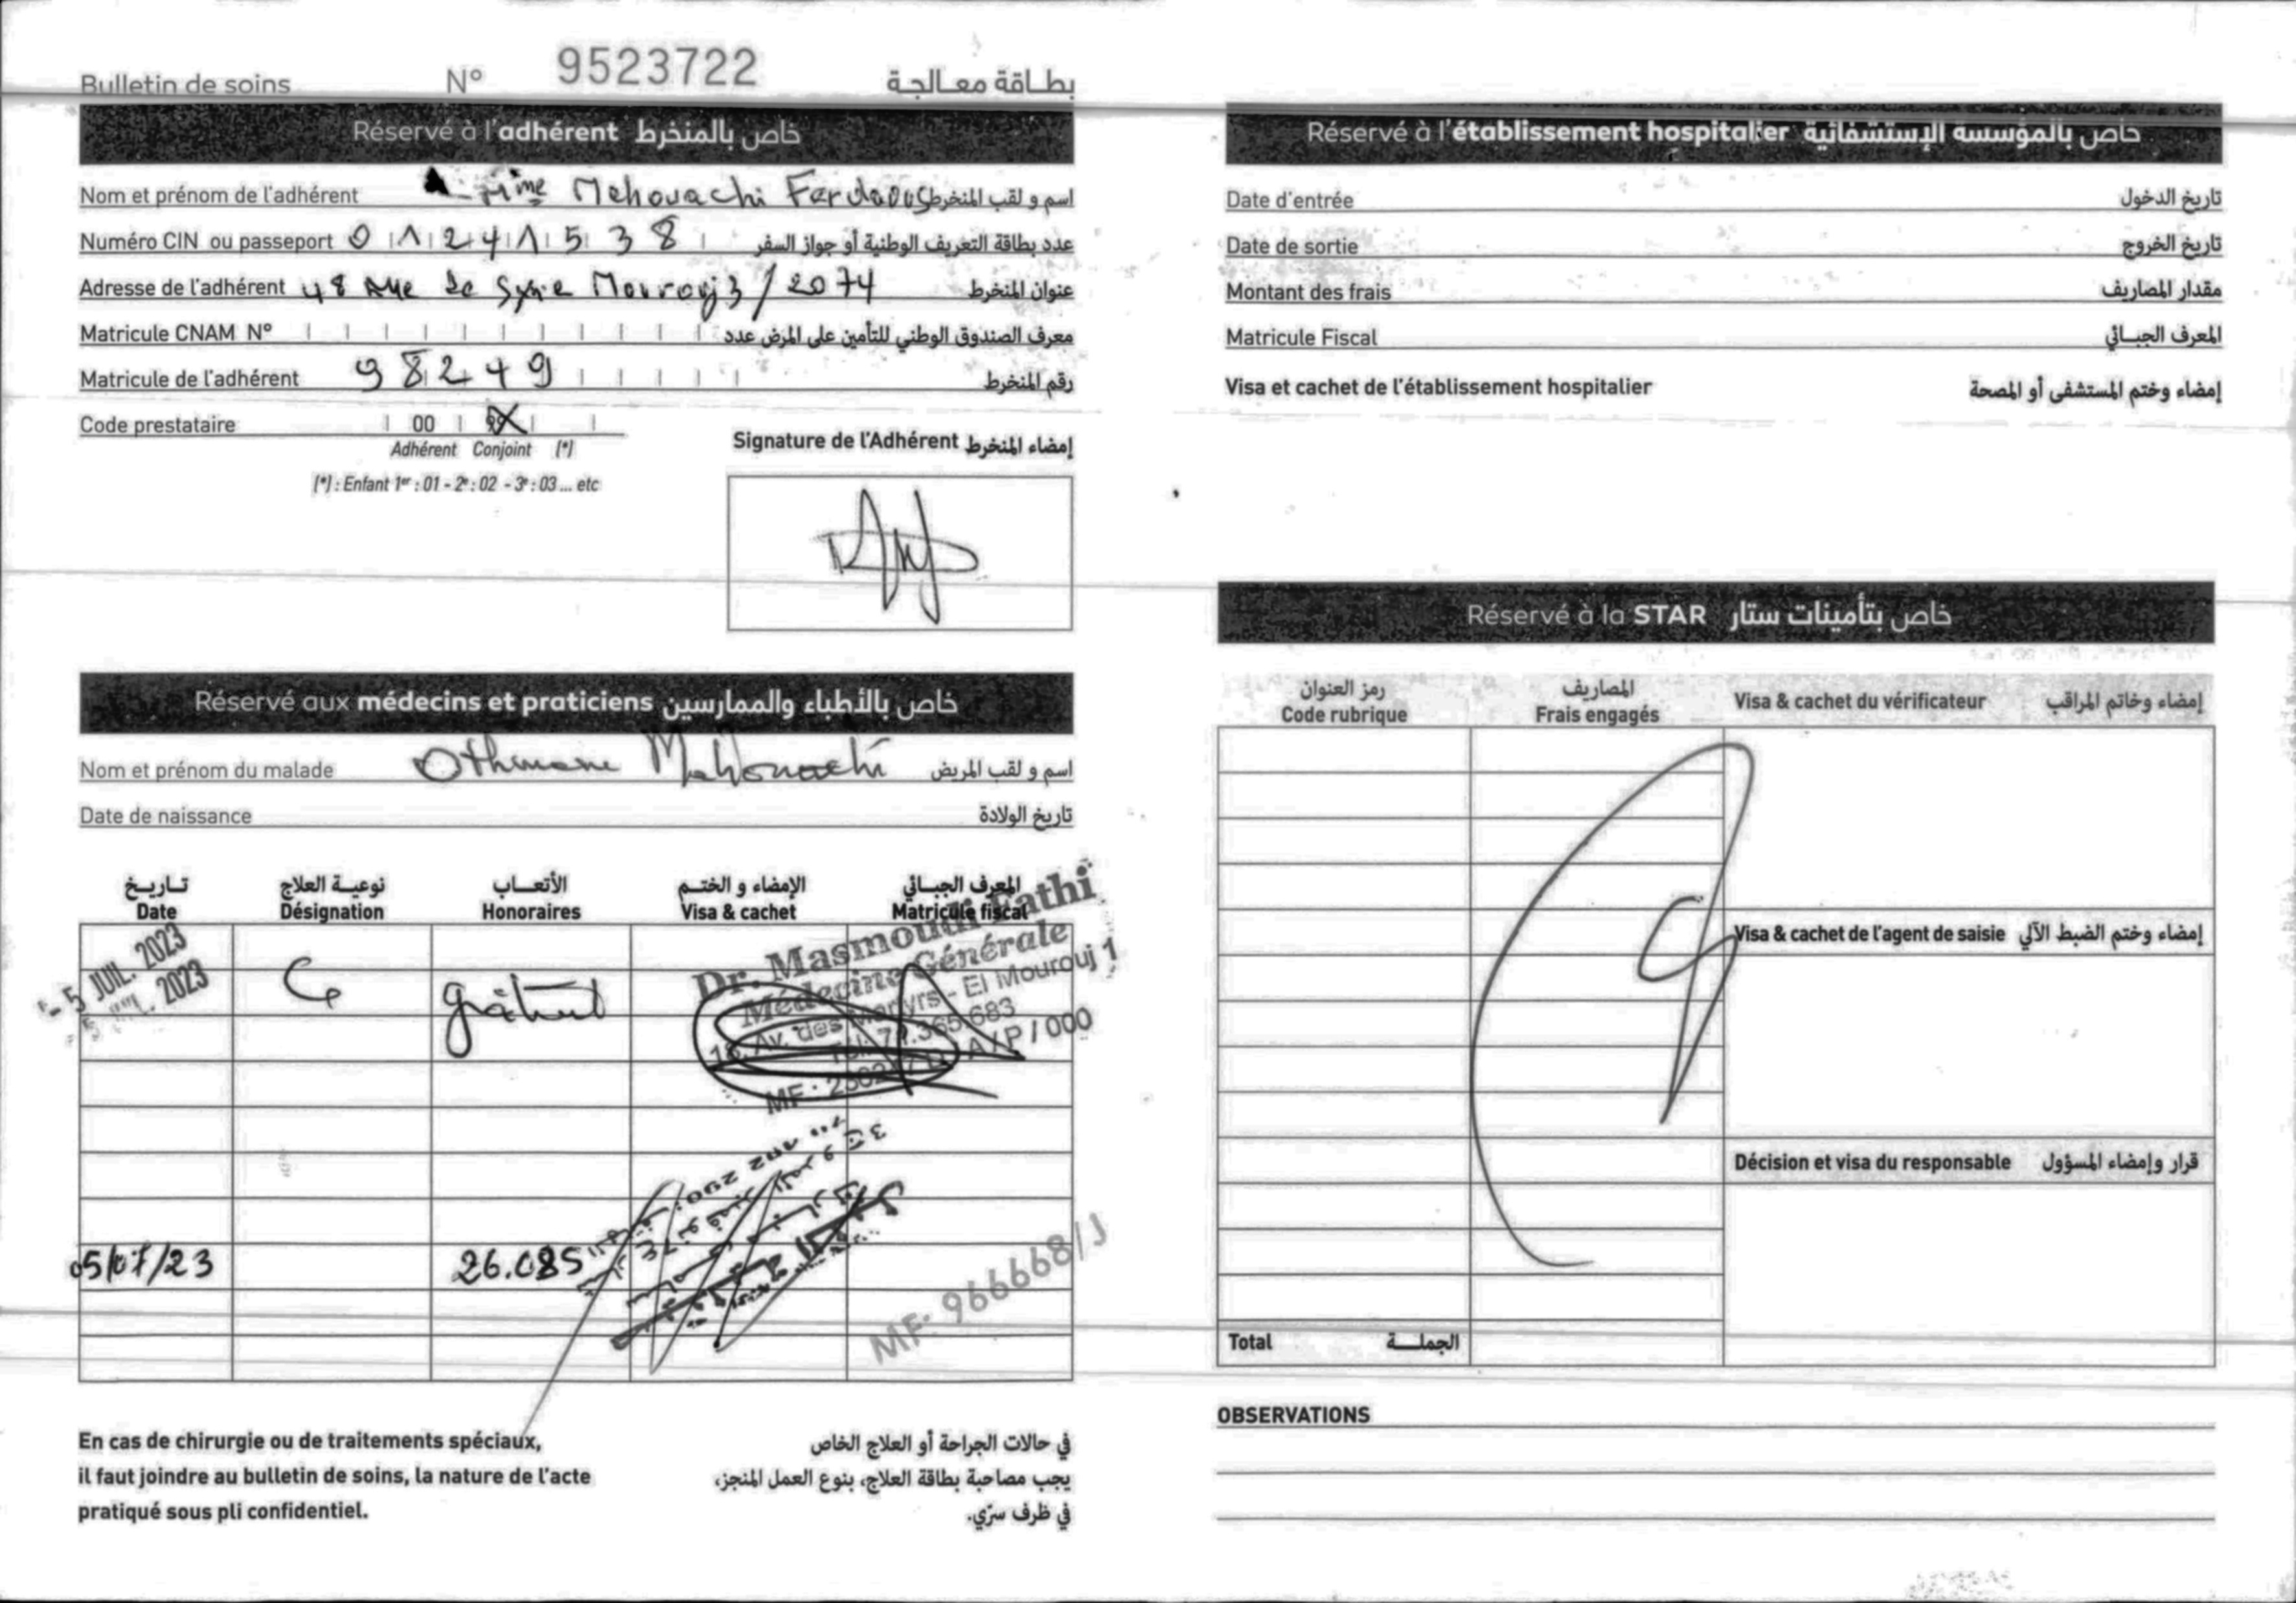 Bulletin de soins N° 9523722 بطاقة معالجة
Réservé à l'adhérent خاص بالمنخرط
Nom et prénom de l'adhérent Mme Mehouachi Ferdaous اسم و لقب المنخرط
Numéro CIN ou passeport 01241538 عدد بطاقة التعريف الوطنية أو جواز السفر
Adresse de l'adhérent 48 Rue de Syrie Mourouj3 / 2074 عنوان المنخرط
Matricule CNAM N° معرف الصندوق الوطني للتأمين على المرض عدد
Matricule de l'adhérent 98249 رقم المنخرط
Code prestataire 00
Adhérent Conjoint (*)
(*) : Enfant 1er : 01 - 2e : 02 - 3e : 03 ... etc
Signature de l'Adhérent إمضاء المنخرط
Réservé aux médecins et praticiens خاص بالأطباء والممارسين
Nom et prénom du malade Othmane Mehouachi اسم و لقب المريض
Date de naissance تاريخ الولادة
تاريخ نوعية العلاج الأتعاب الإمضاء و الختم المعرف الجبائي
Date Désignation Honoraires Visa & cachet Matricule fiscal
- 5 JUIL. 2023 C gratuit
Dr. Masmoudi Fathi
Médecine Générale
18, Av. des Martyrs - El Mourouj 1
Tél: 71.365.683
A / P / 000
05/07/23 26.085
MF: 966668/J
En cas de chirurgie ou de traitements spéciaux,
il faut joindre au bulletin de soins, la nature de l'acte
pratiqué sous pli confidentiel.
في حالات الجراحة أو العلاج الخاص
يجب مصاحبة بطاقة العلاج، بنوع العمل المنجز،
في ظرف سرّي.
Réservé à l'établissement hospitalier خاص بالمؤسسة الإستشفائية
Date d'entrée تاريخ الدخول
Date de sortie تاريخ الخروج
Montant des frais مقدار المصاريف
Matricule Fiscal المعرف الجبائي
Visa et cachet de l'établissement hospitalier إمضاء وختم المستشفى أو المصحة
Réservé à la STAR خاص بتأمينات ستار
رمز العنوان المصاريف
Code rubrique Frais engagés Visa & cachet du vérificateur إمضاء وخاتم المراقب
Visa & cachet de l'agent de saisie إمضاء وختم الضبط الآلي
Décision et visa du responsable قرار وإمضاء المسؤول
Total الجملة
OBSERVATIONS